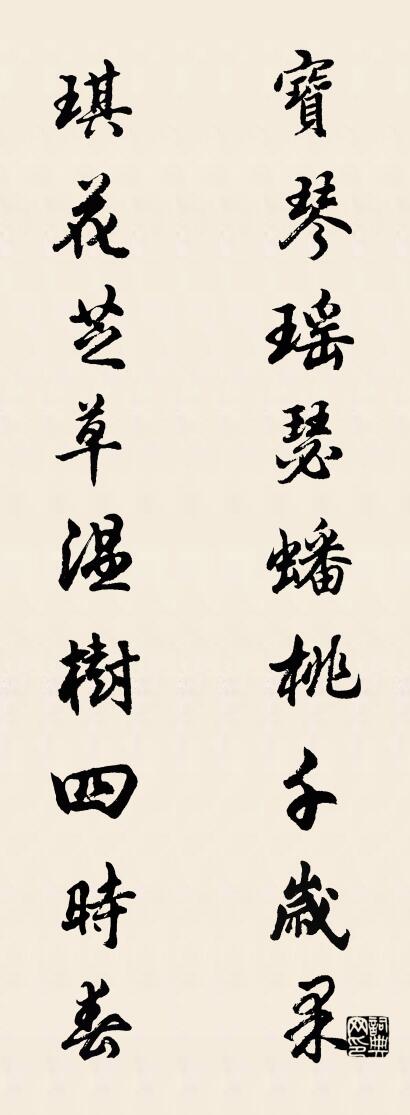 寶琴瑶瑟蟠桃千歲果
琪花芝草温樹四時春
詞典網印